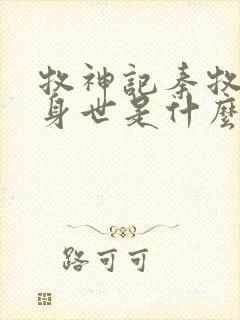 牧神記秦牧
身世是什麼
路可可